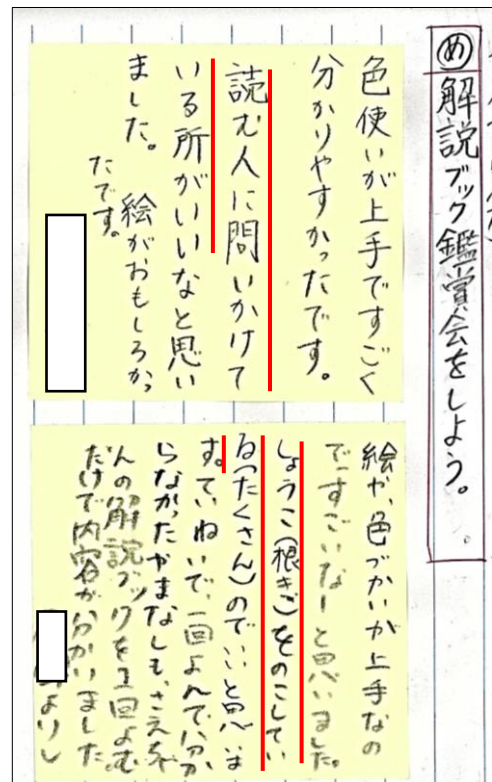 め 解説ブック鑑賞会をしよう。
色使いが上手ですごく
分かりやすかったです。
読む人に問いかけて
いる所がいいなと思い
ました。
絵がおもしろかっ
たです。
絵や、色づかいが上手なの
ですごいなーと思いました。
しょうこ(根きょ)をのこしてい
る(たくさん)のでいいと思いま
す。ていねいで、一回よんで分か
らなかったやまなしも、
んの解説ブックを1回よむ
だけで内容が分かいました
よりし